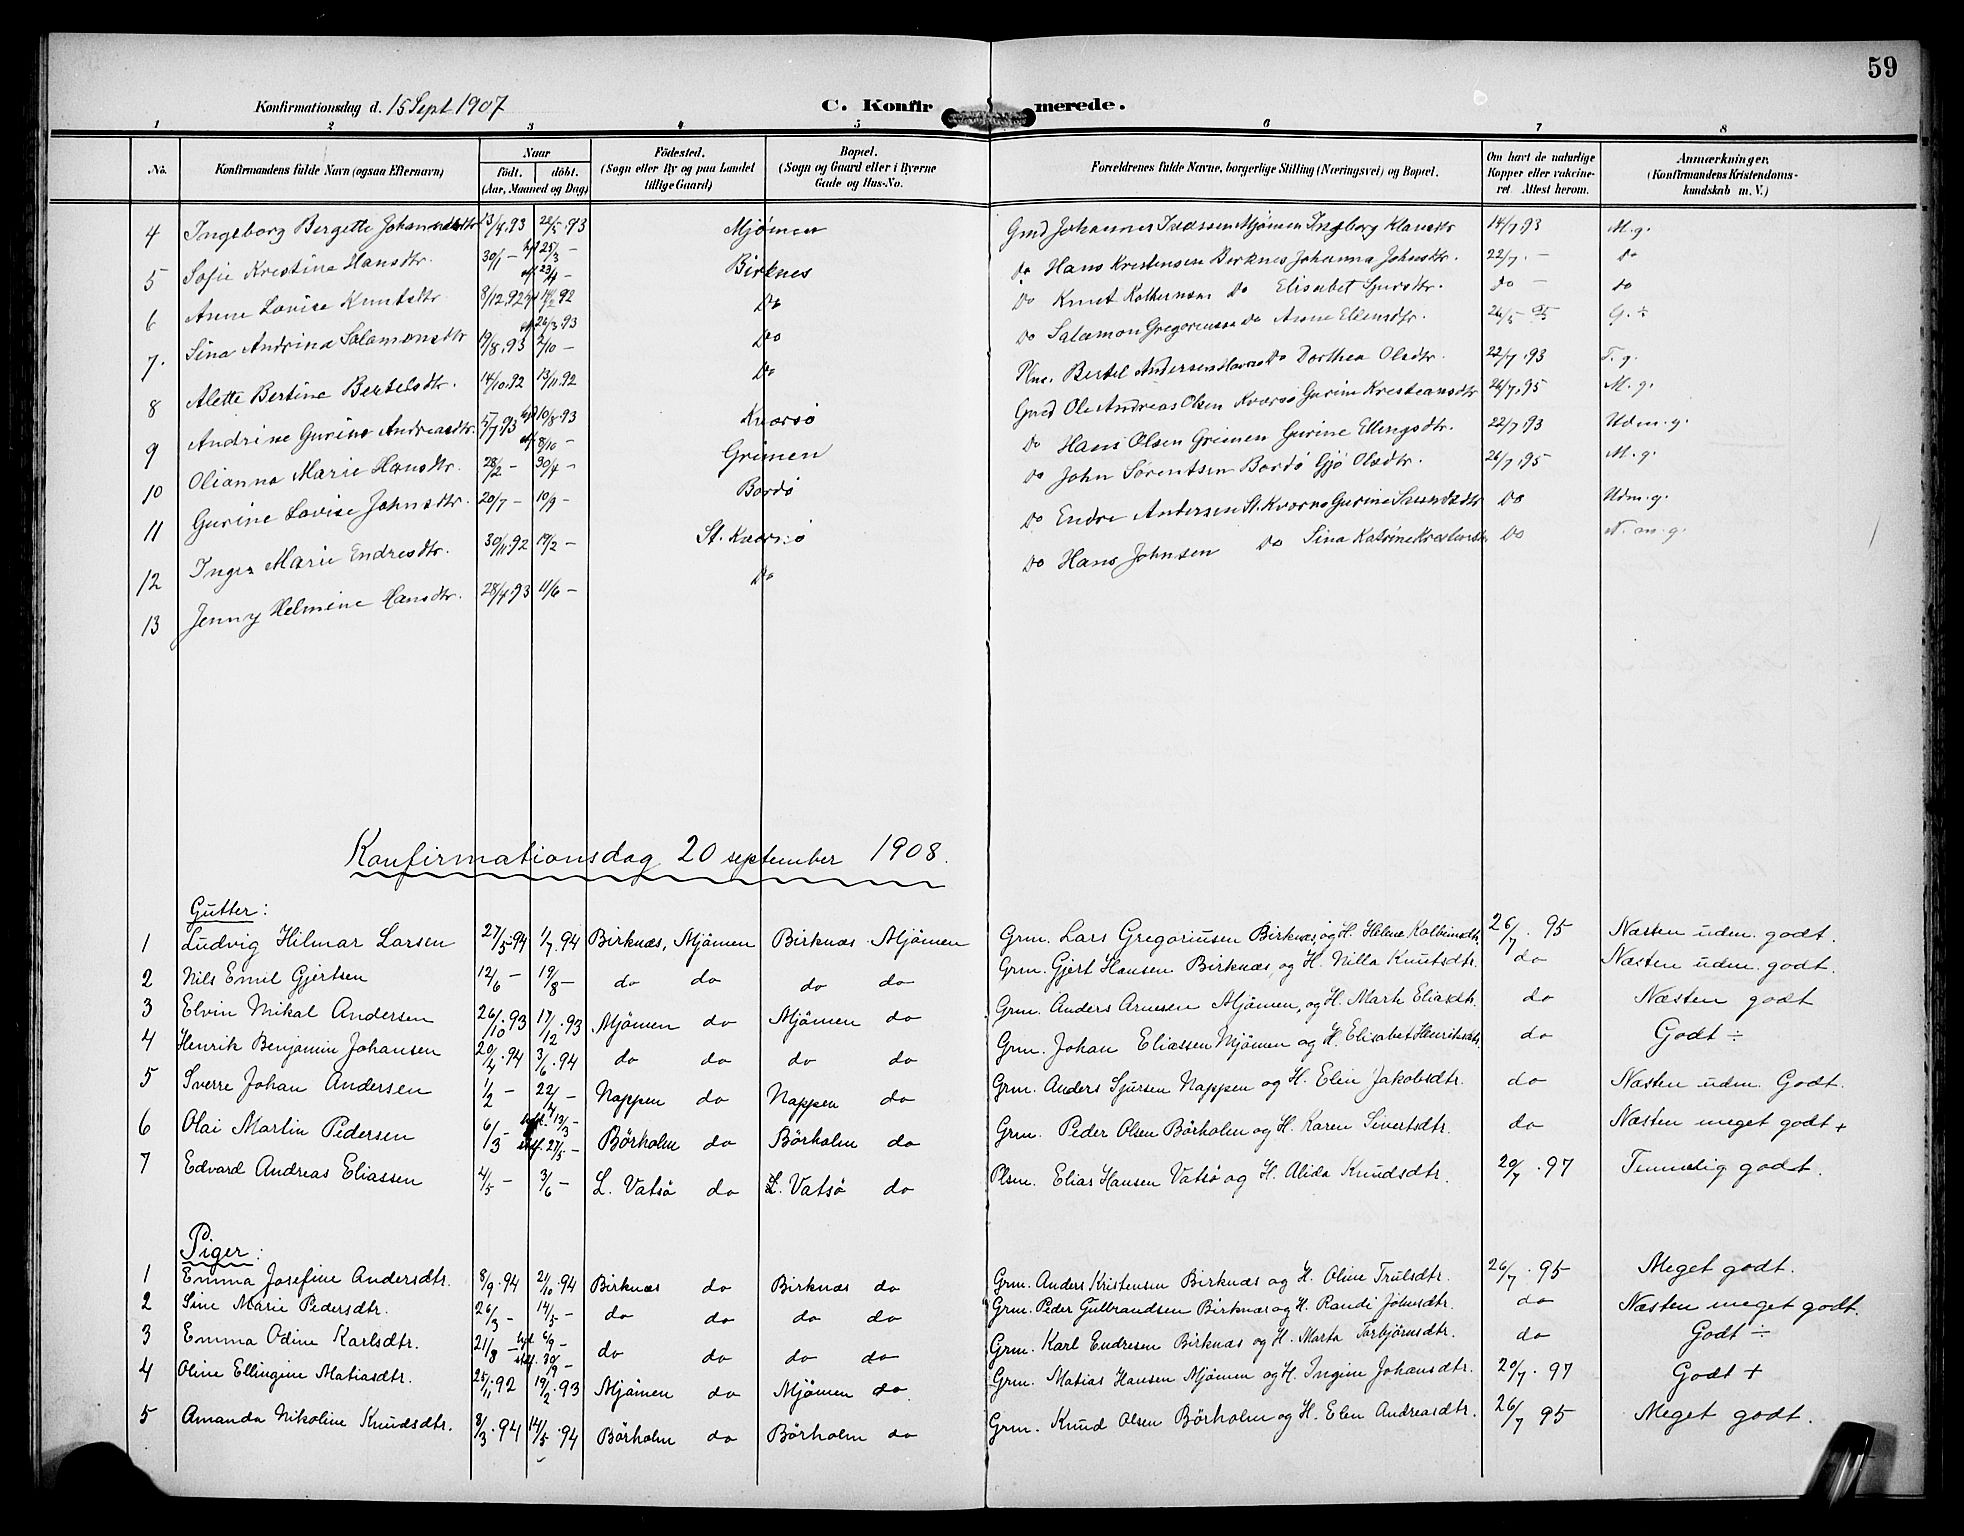 59
Konfirmationsdag d. 15 Sept 1907
C. Konfirmerede.
1 2 3 4 5 6 7 8
No. Konfirmandens fulde Navn (ogsaa Efternavn) Naar født. døbt. (Aar, Maaned og Dag) Fødested. (Sogn eller By og paa Landet tillige Gaard) Bopæl. (Sogn og Gaard eller i Byerne Gade og Hus-No. Forældrenes fulde Navne, borgerlige Stilling (Næringsvei) og Bopæl. Om havt de naturlige Kopper eller vakcineret Attest herom. Anmærkninger. (Konfirmandens Kristendomskundskab m. V.)
4 Ingeborg Bergette Johannesdtr 13/4.93 22/5.93 Mjømen Gmd Johannes Mjømen Ingborg 14/7 93 M.g.
5 Sofie Kristine Hansdtr. 30/1 – 25/3 – 23/4 – Birknes Do Hans Kristensen Birknes Johanna Johnsdtr. 22/7. – do
6 Anne Lovise Knutsdtr 8/12.92 92 26/3.93 Do Do Knut Do Elisabet Sjursdtr. do – do
7. Sina Andrina Salamonsdtr 19/8.93 2/10 – Do Do Salamon Gregoriussen Do Anne Ellensdtr. 26/5 95 G. ÷
8 Alette Bertine Bertelsdtr. 14/10.92 13/11.92 Do Bertel Andersen Do Dorthea Olsdtr. 22/7.93 T.g.
9 Andrine Gurine Andreasdtr. 17/7.93 10/8.93 8/10 – Kværsø Gmd Ole Andreas Olsen Kværsø Gurine Kristiansdtr 26/7.95 M.g.
10 Olianna Marie Hansdtr. 28/2 – 30/4 – Grimen Do Hans Olsen Grimen Gurine Ellingsdtr. 22/7 93 Udm.g.
11 Gurine Lovise Johnsdtr. 20/7 – 10/9 – Bordø Do John Sørentsen Bordø Gjø Olsdtr. 26/7.95 M.g.
12 Inger Marie Endresdtr. 30/11.92 19/2 – St. Kværsø Do Endre Andersen St. Kværnø Gurine Do Udm.g.
13 Jenny Helmine Hansdtr. 28/4.93 11/6 – Do Do Hans Johnsen Do Sina Katrine Do N.m.g.
Konfirmationsdag 20 september 1908.
Gutter:
1 Ludvig Hilmar Larsen 27/5.94 1/7.94 Birknæs, Mjømen Birknæs Mjømen Grm. Lars Gregoriusen Birknæs, og H. Helene Kolbeinsdtr. 26/7. 95 Næsten udm. godt.
2 Nils Emil Gjertsen 12/6 – 19/8 – do do do do Grm. Gjert Hansen Birknæs, og H. Nilla Knutsdtr. do Næsten udm. godt.
3 Elvin Mikal Andersen 26/10.93 17/12.93 Mjømen do Mjømen do Grm. Anders Arnesen Mjømen, og H. Marth Eliasdtr. do Næsten godt
4 Henrik Benjamin Johansen 20/4.94 3/6.94 do do do do Grm. Johan Eliassen Mjømen og H. Elisabet Henriksdtr. do Godt ÷
5 Sverre Johan Andersen 1/2 – 22/4 – Nappen do Nappen do Grm. Anders Sjursen Nappen og H. Elen Jakobsdtr. do Næsten udm. Godt.
6 Olai Martin Pedersen 6/3 – 13/3 – 27/5 – Børholm do Børholm do Grm. Peder Olsen Børholm og H. Karen Sivertsdtr. do Næsten meget godt +
7 Edvard Andreas Eliassen 4/5 – 3/6 – L. Vatsø do L. Vatsø do Plsm. Elias Hansen Vatsø og H. Alida Knudsdtr. 20/7.97 Temmelig godt.
Piger:
1 Emma Josefine Andersdtr. 8/9.94 21/10.94 Birknæs do Birknæs do Grm. Anders Kristensen Birknæs og H. Oline Trulsdtr. 26/7.95 Meget godt.
2 Sine Marie Pedersdtr. 26/3 – 14/5 – do do do do Grm. Peder Gulbrandsen Birknæs og H. Randi Johnsdtr. do Næsten meget godt.
3 Emma Odine Karlsdtr. 21/8 – 6/9 – 30/9 – do do do do Grm. Karl Endresen Birknæs og H. Marta Torbjørnsdtr. do Godt ÷
4 Oline Ellingine Matiasdtr. 25/11.92 19/2.93 Mjømen do Mjømen do. Grm. Matias Hansen Mjømen og H. Ingine Johansdtr. 20/7.97 Godt +
5 Amanda Nikoline Knudsdtr. 8/3.94 14/5.94 Børholm do Børholm do Grm. Knud Olsen Børholm og H. Elen Andreasdtr. 26/7 95 Meget godt.